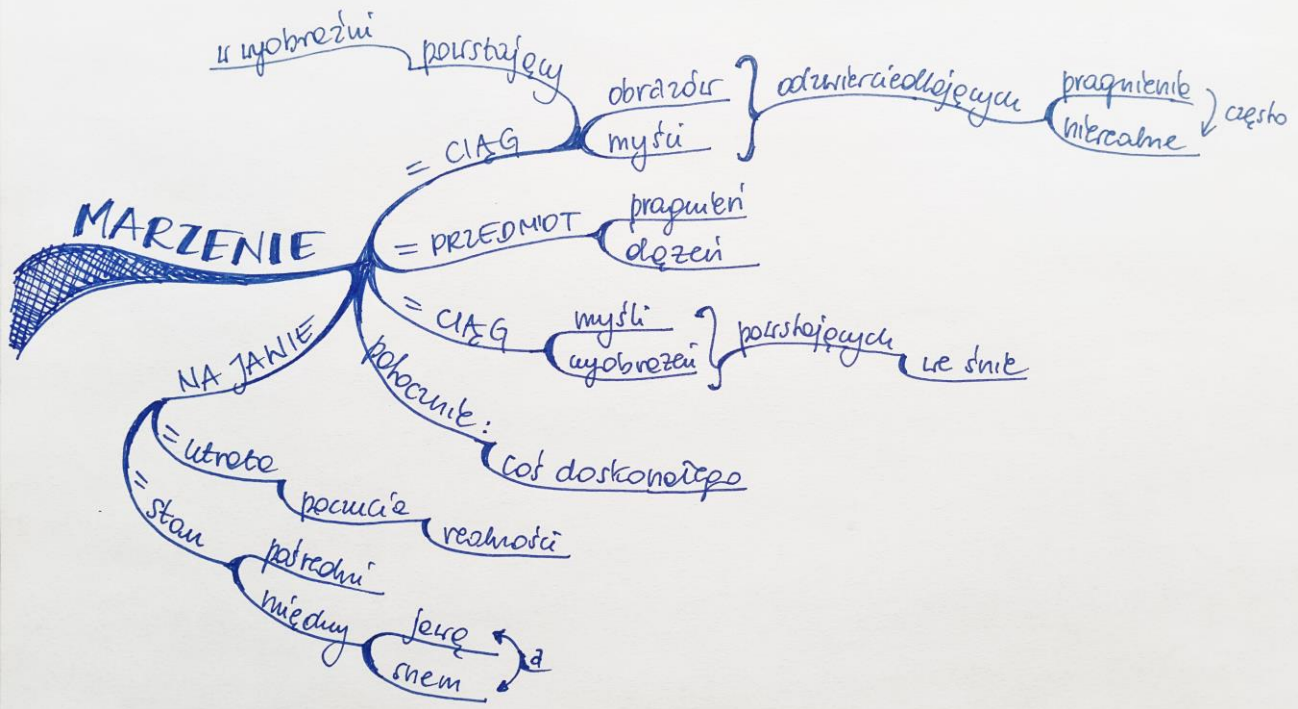 w wyobraźni powstający
= CIĄG
obrazów
myśli
odzwierciedlających
pragnienie
nierealne
często
MARZENIE
= PRZEDMIOT
pragnień
dążeń
= CIĄG
myśli
wyobrażeń
powstających
we śnie
potocznie:
coś doskonałego
NA JAWIE
= utrata
poczucia
realności
= stan
pośredni
między
jawą
snem
a